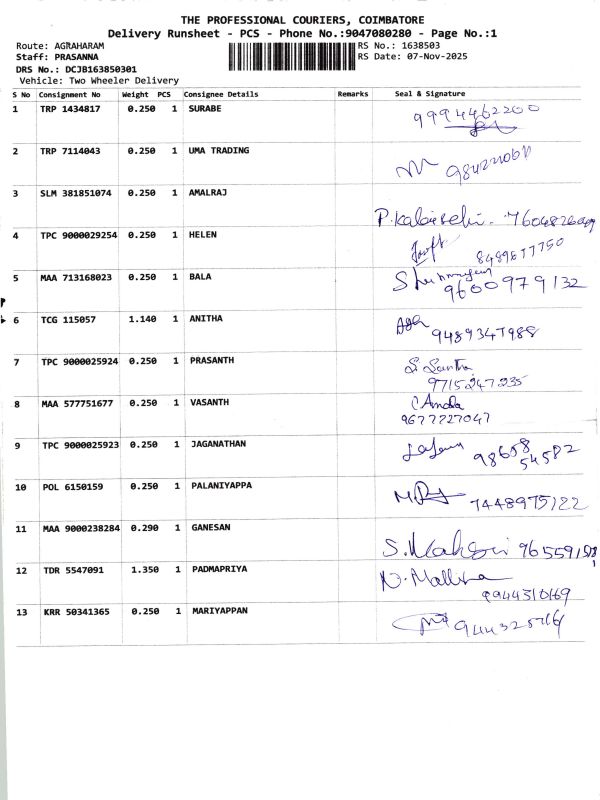 THE PROFESSIONAL COURIERS, COIMBATORE
Delivery Runsheet - PCS - Phone No.:9047080280 - Page No.:1
Route: AGRAHARAM RS No.: 1638503
Staff: PRASANNA RS Date: 07-Nov-2025
DRS No.: DCJB163850301
Vehicle: Two Wheeler Delivery
S No Consignment No Weight PCS Consignee Details Remarks Seal & Signature
1 TRP 1434817 0.250 1 SURABE 9994462200
2 TRP 7114043 0.250 1 UMA TRADING
3 SLM 381851074 0.250 1 AMALRAJ
P.
4 TPC 9000029254 0.250 1 HELEN
8489877750
5 MAA 713168023 0.250 1 BALA
9600979132
6 TCG 115057 1.140 1 ANITHA
9489347988
7 TPC 9000025924 0.250 1 PRASANTH
9715247235
8 MAA 577751677 0.250 1 VASANTH
9677727047
9 TPC 9000025923 0.250 1 JAGANATHAN 98658
54582
10 POL 6150159 0.250 1 PALANIYAPPA
7448975122
11 MAA 9000238284 0.290 1 GANESAN
S.
12 TDR 5547091 1.350 1 PADMAPRIYA
N.
9944310169
13 KRR 50341365 0.250 1 MARIYAPPAN